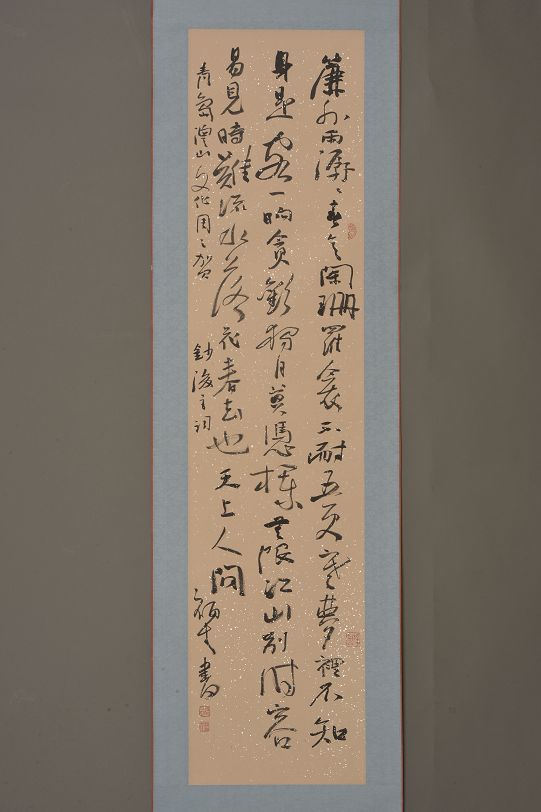 簾外雨潺〻春意闌珊羅衾不耐五更寒夢裡不知
身是客一晌貪歡獨自莫憑欄無限江山別時容
易見時難流水落花春去也天上人間
山文化周〻賀 鈔後主詞 書